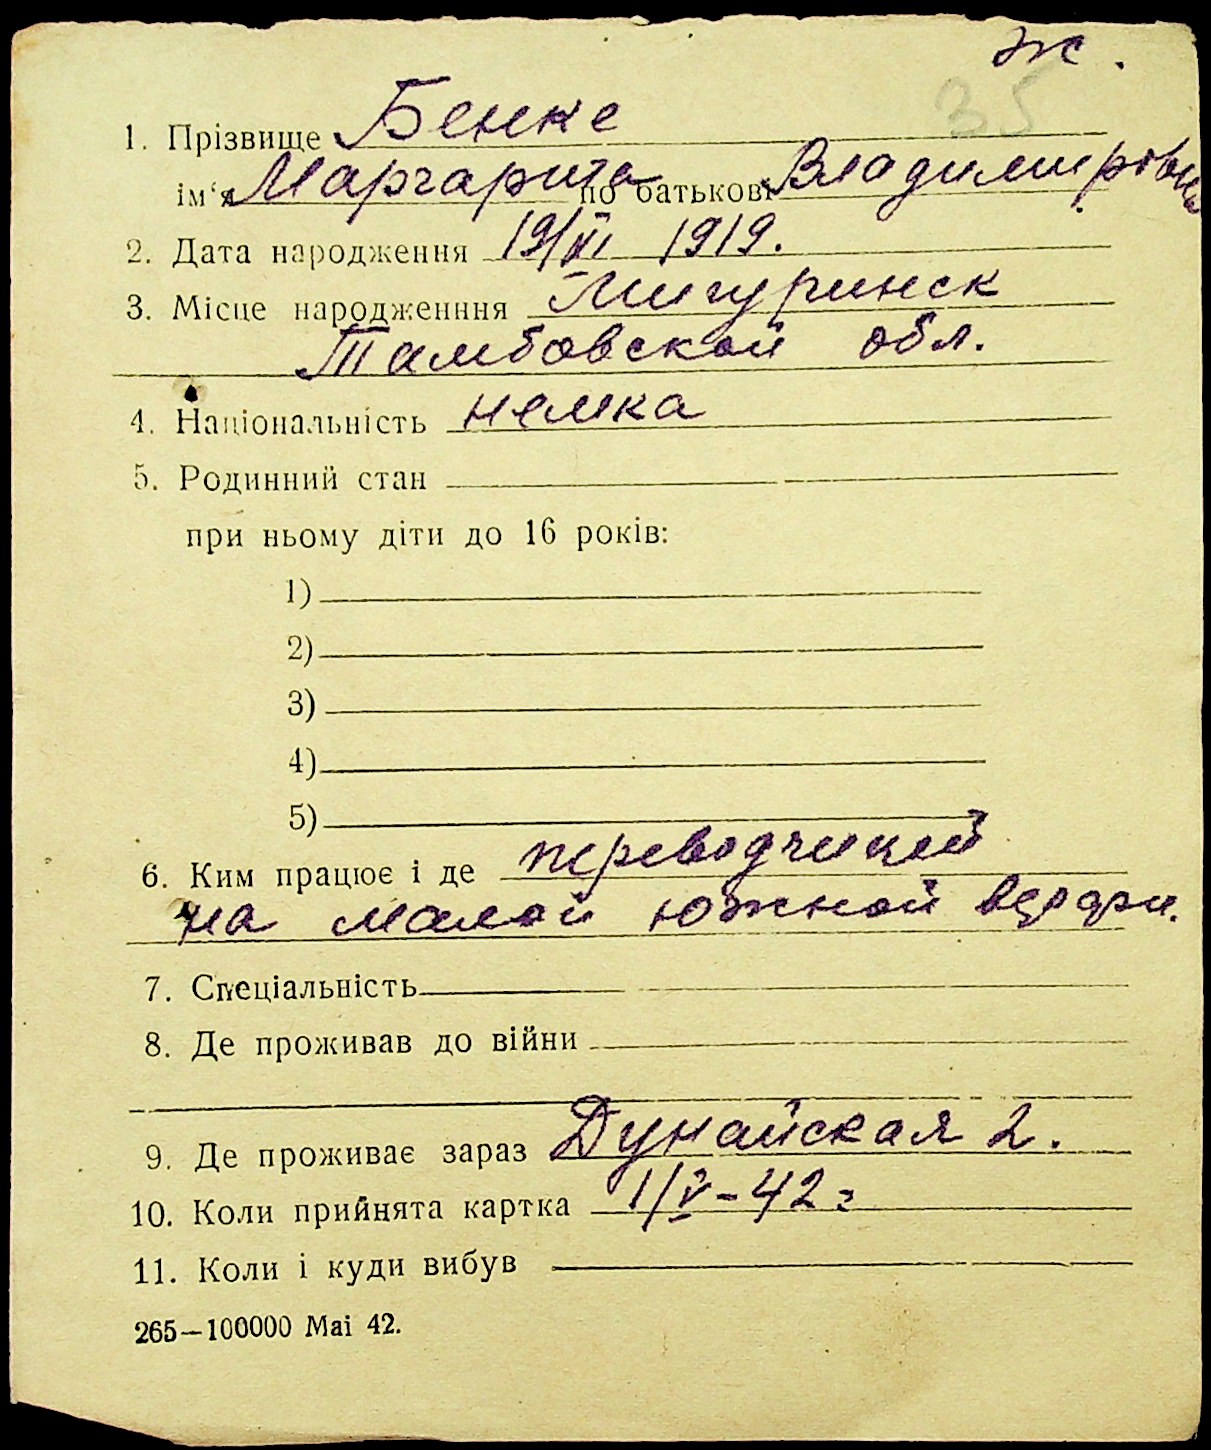 ж.
35
1. Прізвище Бенке
ім'я Маргарита по батькові Владимировна
2. Дата народження 19/VI 1919.
3. Місце народженння Мигуринск
Тамбовской обл.
4. Національність немка
5. Родинний стан
при ньому діти до 16 років:
1)
2)
3)
4)
5)
6. Ким працює і де переводчицей
на малой южной
7. Спеціальність
8. Де проживав до війни
9. Де проживає зараз Дунайская 2.
10. Коли прийнята картка 1/V-42 г
11. Коли і куди вибув
265—100000 Mai 42.